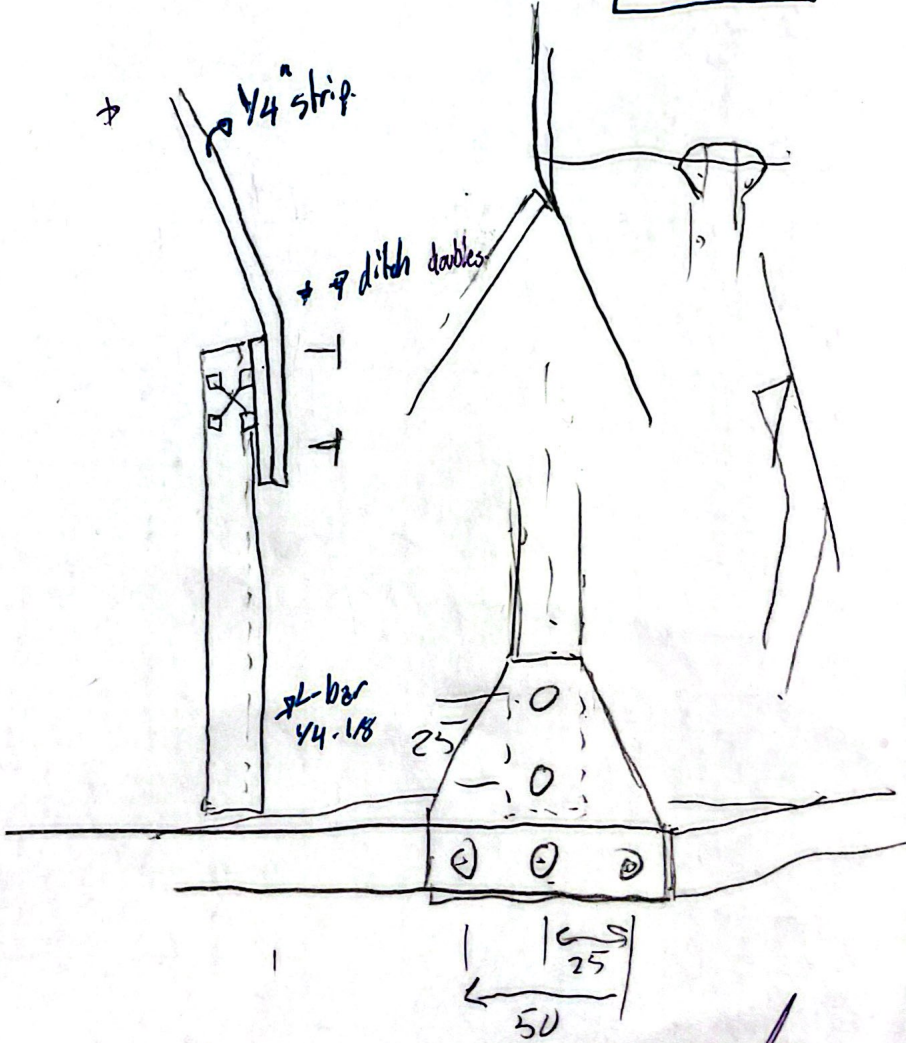 1/4" strip.
ditch doubles.
L-bar
1/4 - 1/8
25
25
50